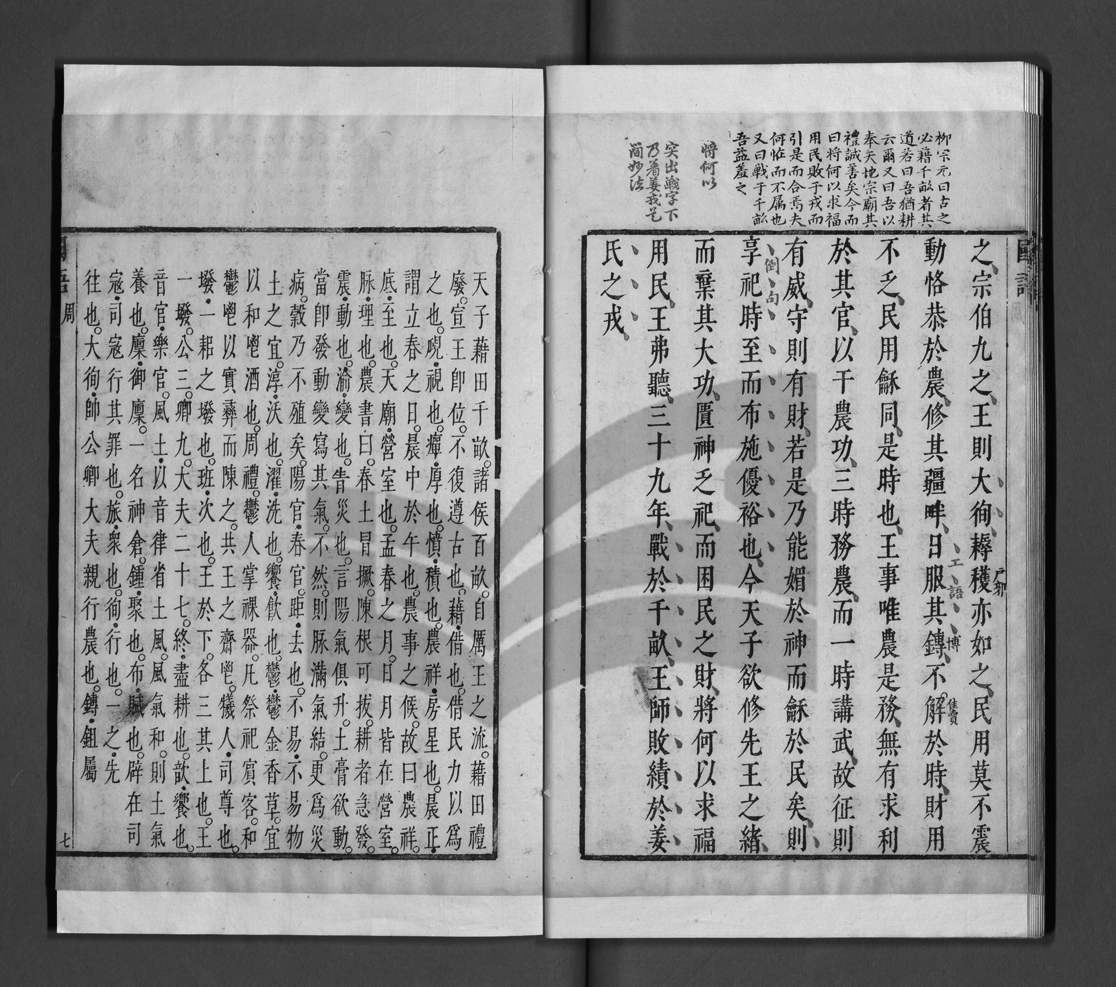 柳宗元曰古之
必藉千畝者其
道若曰吾猶耕
云爾又曰吾以
奉天地宗廟其
禮誠善矣今而
曰將何以求福
用民敗于戎而
引是而合焉夫
何怪而不屬也
又曰戰于千畝
吾益羞之
將何以
突出戰字下
乃着姜戎是
簡妙法
國語
之宗伯九之王則大徇耨穫亦如之民用莫不震
動恪恭於農修其疆畔日服其鎛不解於時財用
不乏民用龢同是時也王事唯農是務無有求利
於其官以干農功三時務農而一時講武故征則
有威守則有財若是乃能媚於神而龢於民矣則
享祀時至而布施優裕也今天子欲修先王之緒
而棄其大功匱神乏祀而困民之財將何以求福
用民王弗聽三十九年戰於千畝王師敗績於姜
氏之戎
工語
博
倒句
天子藉田千畝諸侯百畝自厲王之流藉田禮
廢宣王卽位不復遵古也藉借也借民力以爲
之也覛視也癉厚也憤積也農祥房星也晨正
謂立春之日晨中於午也農事之候故曰農祥
底至也天廟營室也孟春之月日月皆在營室
脉理也農書曰春土冒橛陳根可拔耕者急發
震動也渝變也眚災也言陽氣俱升土膏欲動
當卽發動變寫其氣不然則脉滿氣結更爲災
病穀乃不殖矣陽官春官距去也不易不易物
土之宜淳沃也濯洗也饗飲也鬱鬱金香草宜
以和鬯酒也周禮鬱人掌祼器凡祭祀賓客和
鬱鬯以實彝而陳之共王之齋鬯犧人司尊也
墢一耜之墢也班次也王於下各三其上也王
一墢公三卿九大夫二十七終盡耕也歆饗也
音官樂官風土以音律省土風風氣和則土氣
養也廩御廩一名神倉鍾聚也布賦也辟在司
寇司寇行其罪也旅衆也徇行也一之先
往也大徇帥公卿大夫親行農也鎛鉏屬
國語 周
七